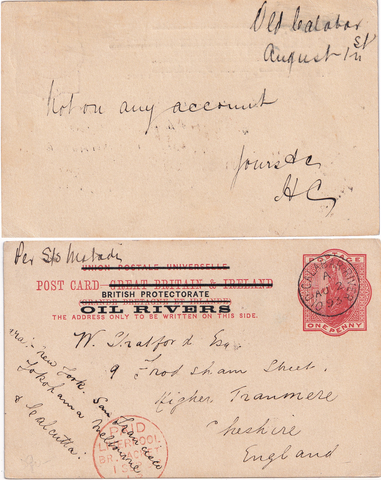 Old Calabar
August 1st
Not on any account
Yours &c
HC
Per S/s Matadi
UNION POSTALE UNIVERSELLE
POST CARD GREAT BRITAIN & IRELAND
BRITISH PROTECTORATE
GRANDE BRETAGNE ET IRLANDE
OIL RIVERS
THE ADDRESS ONLY TO BE WRITTEN ON THIS SIDE.
ONE PENNY
W. Stratford Esq
9 Frodsham Street,
Higher Tranmere
Cheshire
England
via: New York. San Francisco
Yokohama Melbourne,
& Calcutta.
PAID
LIVERPOOL
BR. PACKET